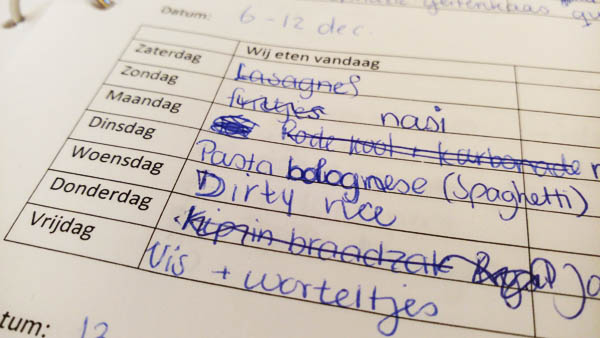 Datum: 6-12 dec.
Wij eten vandaag
Zaterdag Lasagne
Zondag frietjes nasi
Maandag Rode kool + karbonade
Dinsdag Pasta bolognese (Spaghetti)
Woensdag Dirty rice
Donderdag Kip in braadzak
Vrijdag Vis + worteltjes
tum: 12